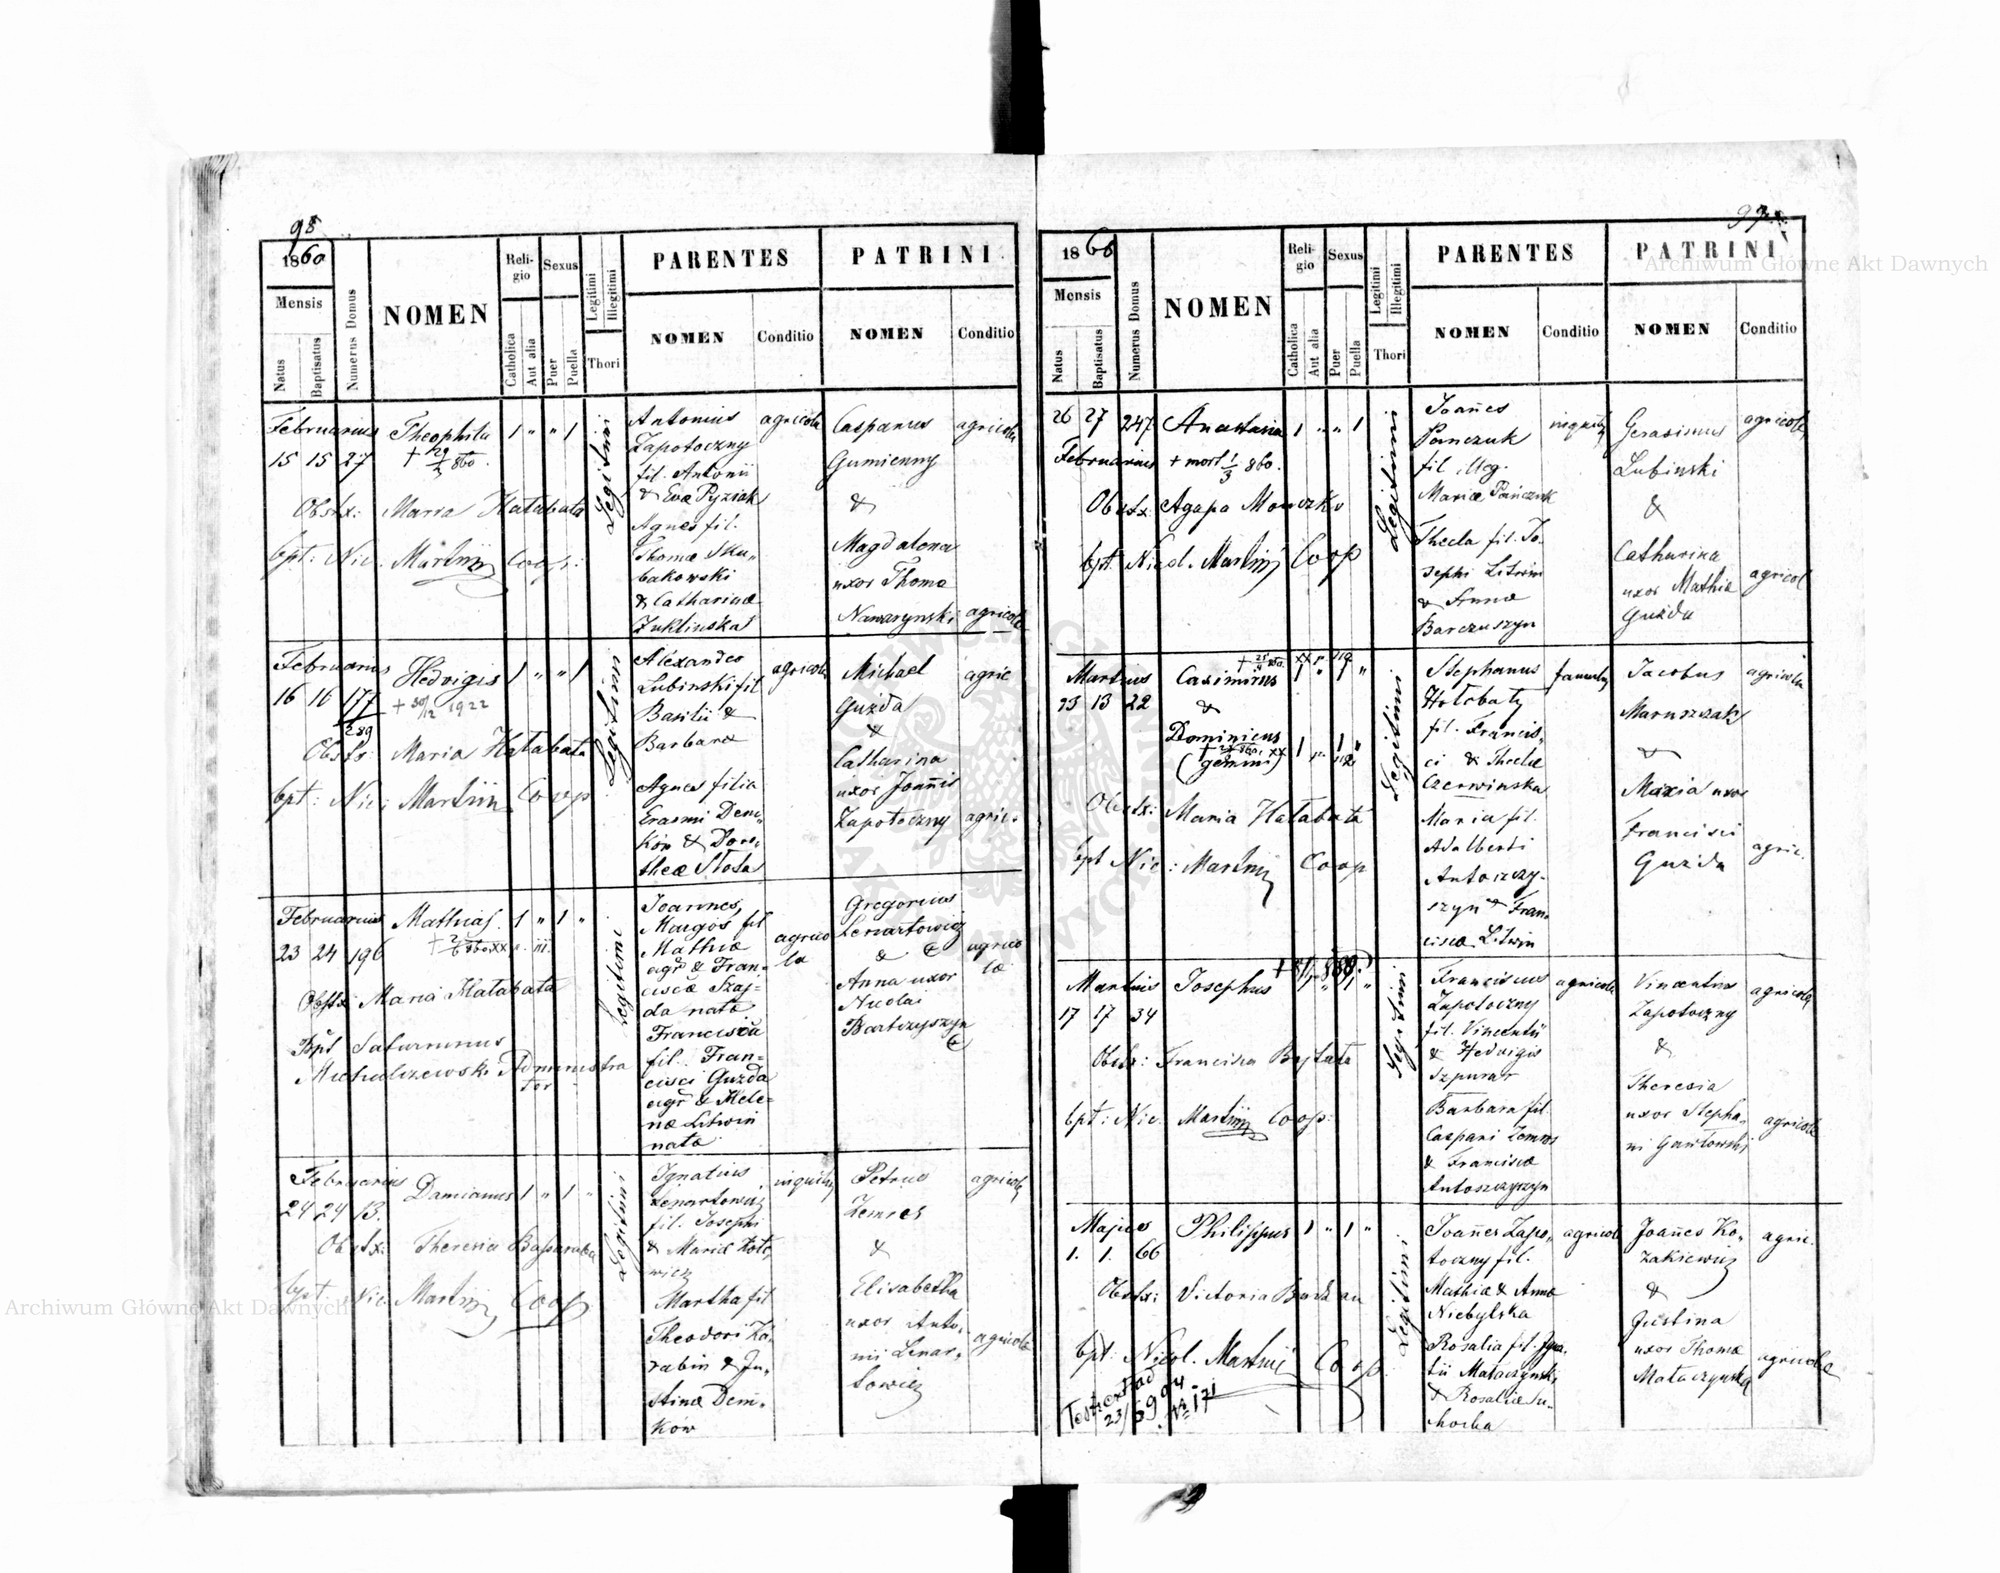 98
1860
Mensis
Natus
Baptisatus
Numerus Domus
NOMEN
Religio
Catholica
Aut alia
Sexus
Puer
Puella
Legitimi
Illegitimi
Thori
PARENTES
NOMEN
Conditio
PATRINI
NOMEN
Conditio
Februarius
15 15 27
Theophila
1 " " 1
Obstx: Maria Hałabała
bpt: Nic. Martinj Coop:
Legitimi
Antonius
Zapotoczny
fil. Antonii
& Evæ Pyziak
Agnes fil.
Thomæ Sku„
bakowski
& Catharinæ
Żuklinska
agricola
Casparus
Gumienny
&
Magdalena
uxor Thomæ
Nawarynski
agricola
agricolæ
Februarius
16 16 177
289
Hedvigis
+ 30/12 1922
1 " " 1
Obstx: Maria Hałabała
bpt: Nic: Martiin Coop
Legitimi
Alexander
Lubinski fil
Basilii &
Barbaræ
Agnes filia
Erasmi Dem„
ków & Doro„
theæ Stosa
agricola
Michael
Guzda
&
Catharina
uxor Joañis
Zapotoczny
agric
agric.
Februarius
23 24 196
Mathias.
1 " 1 "
Obstx Maria Hałabała
Bpt Saturninus
Michalczewski Administra
tor
Legitimi
Joannes
Margos fil
Mathiæ
agr & Fran=
ciscæ Szaj=
da nata
Francisca
fil. Fran=
cisci Guzda
agr & Hele=
næ Litwin
nata
agrico
la
Gregorius
Lenartowicz
&
Anna uxor
Nicolai
Bartczyszyn
agrico
læ
Februarius
24 24 13.
Damianus
1 " 1 "
Obstx: Theresia Bassaraba
bpt: Nic. Martinj Coop
Legitimi
Ignatius
Lenartowicz
fil. Josephi
& Mariæ Koto
wicz
Martha fil
Theodori Ka„
rabin & Ju„
stinæ Dem„
ków
inquilin
Petrus
Zemres
&
Elisabetha
uxor Anto„
nii Lenar„
towicz
agricola
agricolæ
97
1860
Mensis
Natus
Baptisatus
Numerus Domus
NOMEN
Religio
Catholica
Aut alia
Sexus
Puer
Puella
Legitimi
Illegitimi
Thori
PARENTES
NOMEN
Conditio
PATRINI
NOMEN
Conditio
26 27 247
Februarius
Anastasia
+ mort 1/3 860.
1 " " 1
Obstx: Agapa Monczko
bpt: Nicol. Martinj Coop
Legitimi
Joañes
Panczuk
fil. illeg.
Mariæ Pańczuk
Thecla fil. Jo„
sephi Litwin
& Annæ
Barczuszyn
Gerasimus
Lubinski
&
Catharina
uxor Mathiæ
Guzda
agricola
agricol
Martius
13 13 22
Casimirus
&
Dominicus
(gemini)
Obstx: Maria Hałabała
bpt Nic: Martinj Coop
Legitimi
Stephanus
Hołobaty
fil. Francis„
ci & Theclæ
Czerwinska
Maria fil.
Adalberti
Antoszczy-
szyn & Fran„
ciscæ Litwin
famulus
Jacobus
Maruszak
&
Maria uxor
Francisci
Guzda
agricola
agric.
Martius
17 17 34
Josephus
Obstx: Francisca Bajtała
bpt: Nic. Martinj Coop:
Legitimi
Franciscus
Zapotoczny
fil. Vincentii
& Hedvigis
Szpunar
Barbara fil.
Caspari Zemres
& Franciscæ
Antoszczyszyn
agricola
Vincentius
Zapotoczny
&
Theresia
uxor Stepha„
ni Gawłowski
agricola
agricolæ
Majus
1. 1. 66
Philippus
1 " 1 "
Obstx: Victoria Burdzan
bpt: Nicol. Martinj Coop.
Legitimi
Joañes Zapo„
toczny fil.
Mathiæ & Annæ
Niebylska
Rosalia fil. Igna„
tii Mataczynski
& Rosaliæ Su„
chocka
agricola
Joañes Ko„
zakiewicz
&
Justina
uxor Thomæ
Mataczynski
agric.
agricolæ
Archiwum Główne Akt Dawnych
Archiwum Główne Akt Dawnych